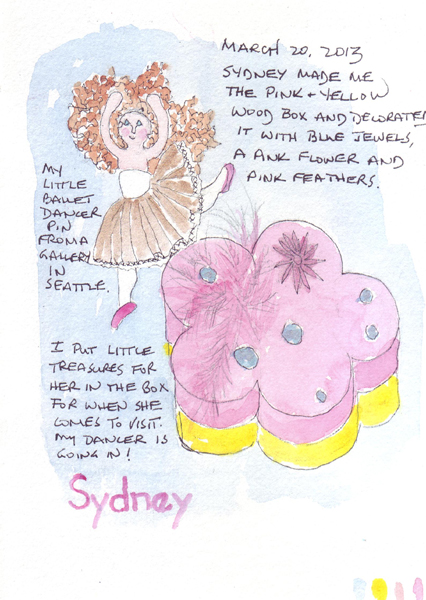 MARCH 20, 2013
SYDNEY MADE ME
THE PINK + YELLOW
WOOD BOX AND DECORATED
IT WITH BLUE JEWELS,
A PINK FLOWER AND
PINK FEATHERS.
MY
LITTLE
BALLET
DANCER
PIN
FROM A
GALLERY
IN
SEATTLE.
I PUT LITTLE
TREASURES FOR
HER IN THE BOX
FOR WHEN SHE
COMES TO VISIT.
MY DANCER IS
GOING IN!
Sydney